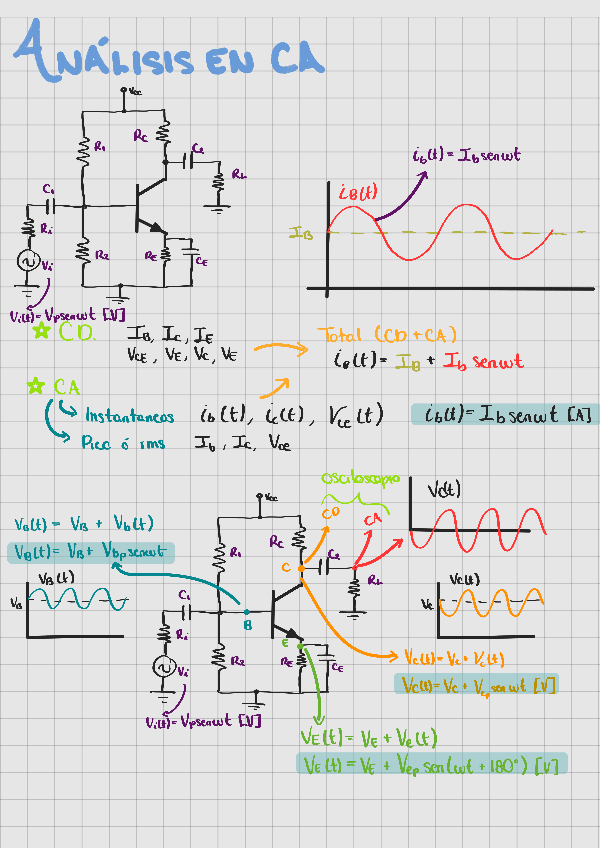 ANÁLISIS EN CA
Vcc
R1
Rc
C2
RL
C1
Ri
Vi
R2
RE
CE
Vi(t) = Vp senwt [V]
ib(t) = Ib senwt
iB(t)
IB
☆ CD.
IB, IC, IE
VCE, VE, VC, VE
Total (CD + CA)
iB(t) = IB + Ib senwt
☆ CA
Instantaneos
ib(t), ic(t), Vce(t)
ib(t) = Ib senwt [A]
Pico ó rms
Ib, Ic, Vce
Osciloscopio
CD
CA
Vc(t)
VB(t) = VB + Vb(t)
VB(t) = VB + Vbp senwt
VB(t)
VB
Vcc
R1
Rc
C
C2
RL
C1
B
Ri
Vi
R2
E
RE
CE
Vi(t) = Vp senwt [V]
Vc(t)
Vc
Vc(t) = Vc + Vc(t)
Vc(t) = Vc + Vcp senwt [V]
VE(t) = VE + Ve(t)
VE(t) = VE + Vep sen(wt + 180°) [V]